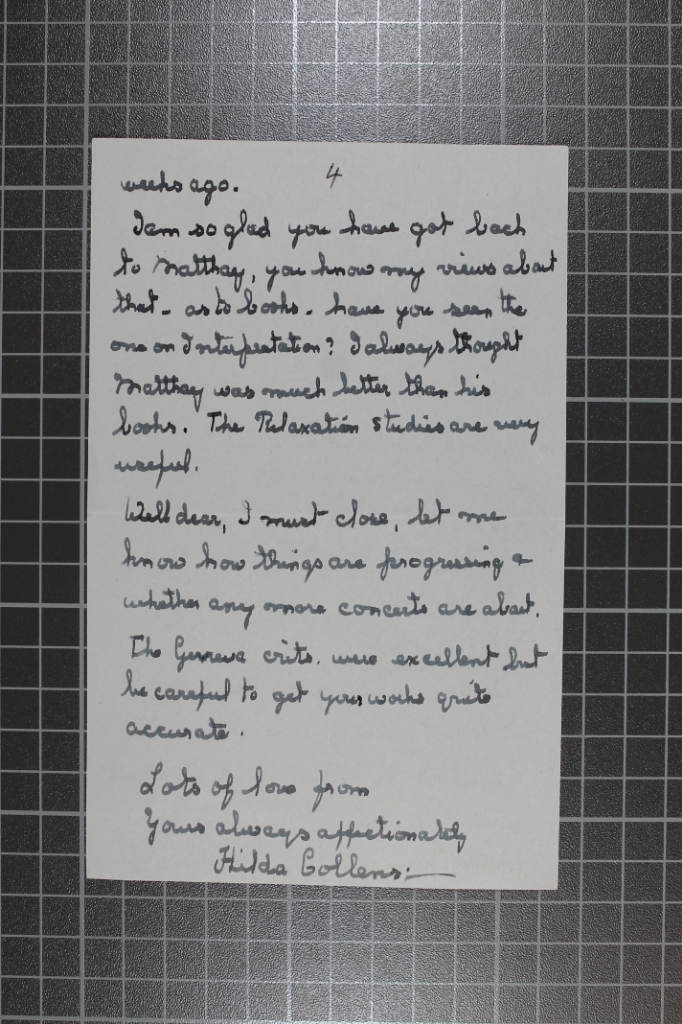 4
weeks ago.
I am so glad you have got back
to Matthay, you know my views about
that - as to books - have you seen the
one on Interpretation? I always thought
Matthay was much better than his
books. The Relaxation studies are very
useful.
Well dear, I must close, let me
know how things are progressing &
whether any more concerts are about.
The Geneva crits. were excellent but
be careful to get your works quite
accurate.
Lots of love from
Yours always affectionately
Hilda Collens:—